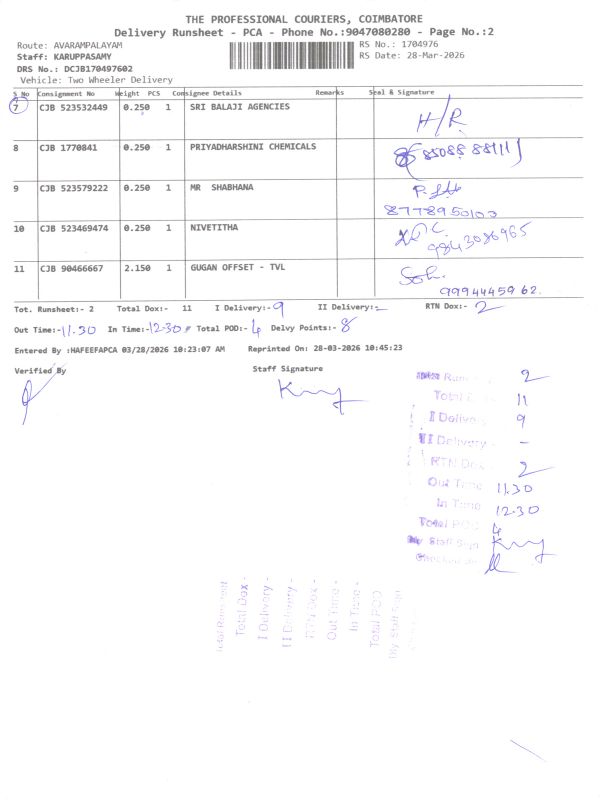 THE PROFESSIONAL COURIERS, COIMBATORE
Delivery Runsheet - PCA - Phone No.:9047080280 - Page No.:2
Route: AVARAMPALAYAM RS No.: 1704976
Staff: KARUPPASAMY RS Date: 28-Mar-2026
DRS No.: DCJB170497602
Vehicle: Two Wheeler Delivery
S No Consignment No Weight PCS Consignee Details Remarks Seal & Signature
7 CJB 523532449 0.250 1 SRI BALAJI AGENCIES H/R
8 CJB 1770841 0.250 1 PRIYADHARSHINI CHEMICALS 85088 88111
9 CJB 523579222 0.250 1 MR SHABHANA
8778950103
10 CJB 523469474 0.250 1 NIVETITHA 9843086965
11 CJB 90466667 2.150 1 GUGAN OFFSET - TVL
9994445962.
Tot. Runsheet:- 2 Total Dox:- 11 I Delivery:- 9 II Delivery:- - RTN Dox:- 2
Out Time:- 11.30 In Time:- 12-30 Total POD:- 4 Delvy Points:- 8
Entered By :HAFEEFAPCA 03/28/2026 10:23:07 AM Reprinted On: 28-03-2026 10:45:23
Verified By Staff Signature
2
Total 11
I Delivery 9
II Delivery - -
RTN Dox - 2
Out Time 11.30
In Time 12.30
Total POD 4
Staff Sign
Total Dox -
I Delivery -
II Delivery -
RTN Dox -
Out Time -
In Time -
Total POD
Staff Sign